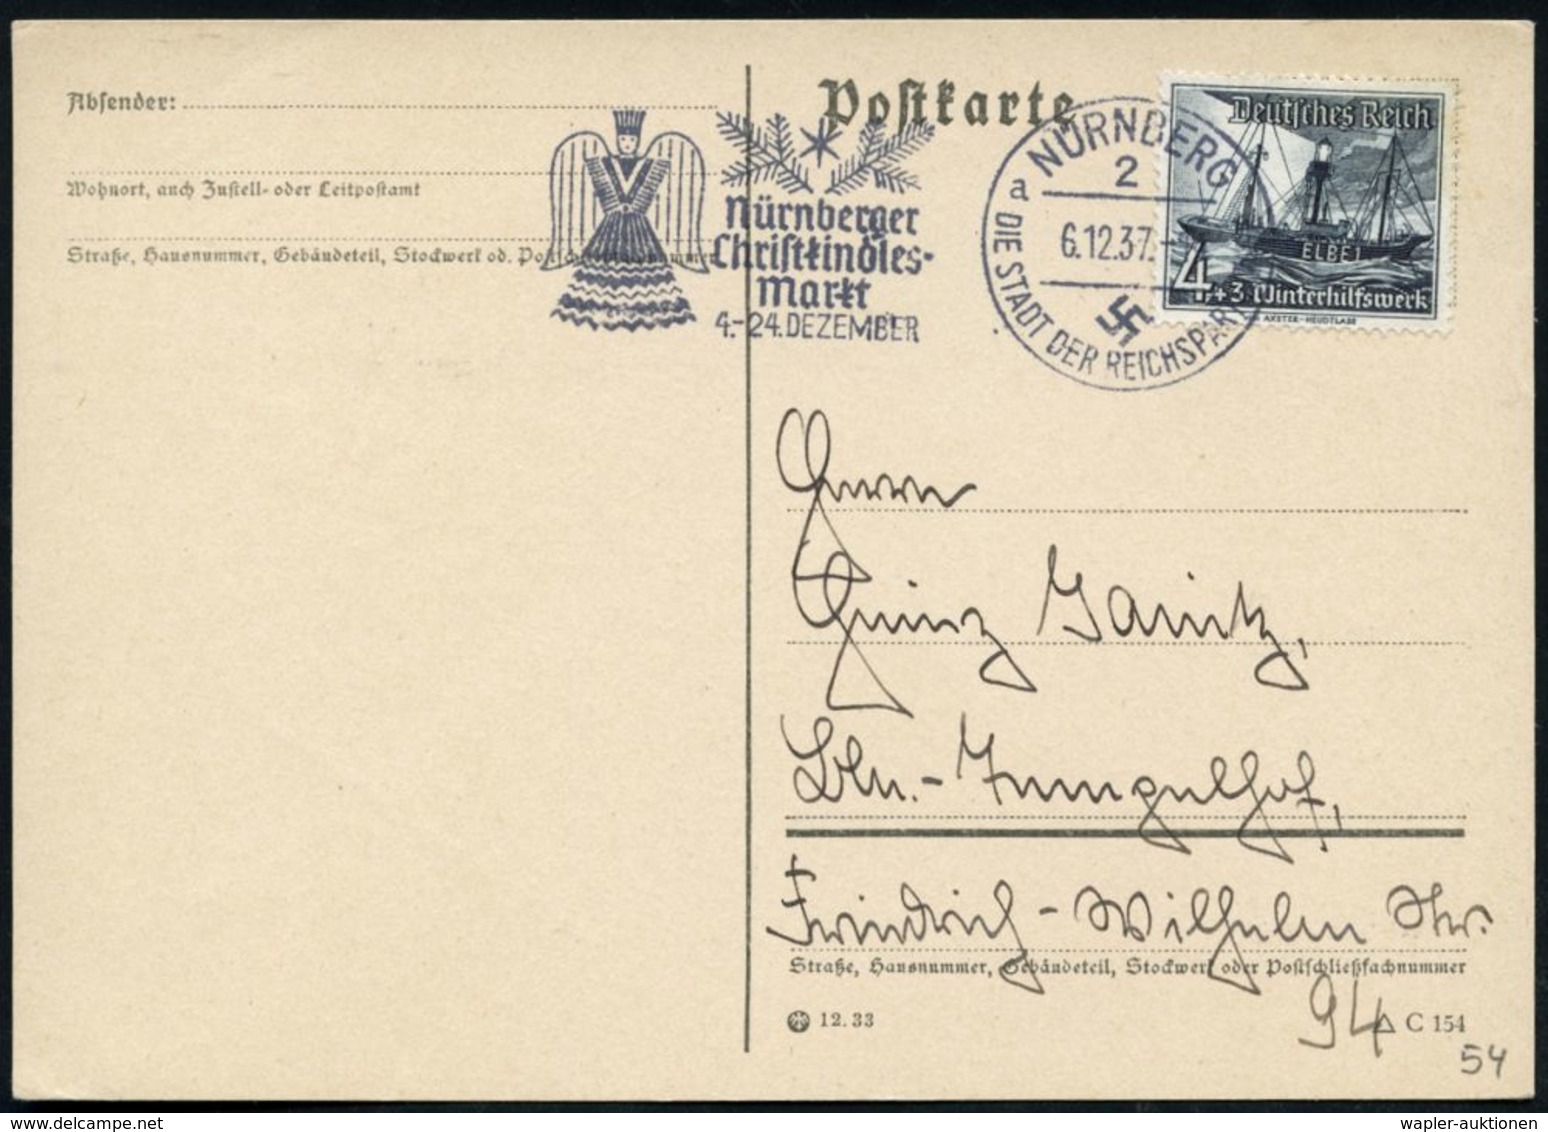 Absender:
Wohnort, auch Zustell- oder Leitpostamt
Straße, Hausnummer, Gebäudeteil, Stockwerk od. Postschließfachnummer
Nürnberger
Christkindles-
Markt
4.-24. DEZEMBER
Postkarte
NÜRNBERG
2
a
6.12.37.
DIE STADT DER REICHSPAR
Deutsches Reich
ELBE 1
4+3 Winterhilfswerk
AXSTER-HEUDTLASS
Herrn
Heinz Janitz,
Bln.-Tempelhof,
Friedrich-Wilhelm Str.
Straße, Hausnummer, Gebäudeteil, Stockwerk oder Postschließfachnummer
94
12. 33
C 154
54
wapler-auktionen